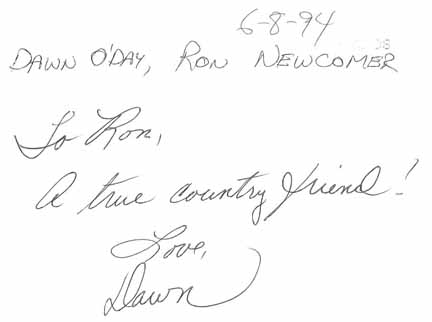 6-8-94
DAWN O'DAY, RON NEWCOMER
To Ron,
A true country friend!
Love,
Dawn